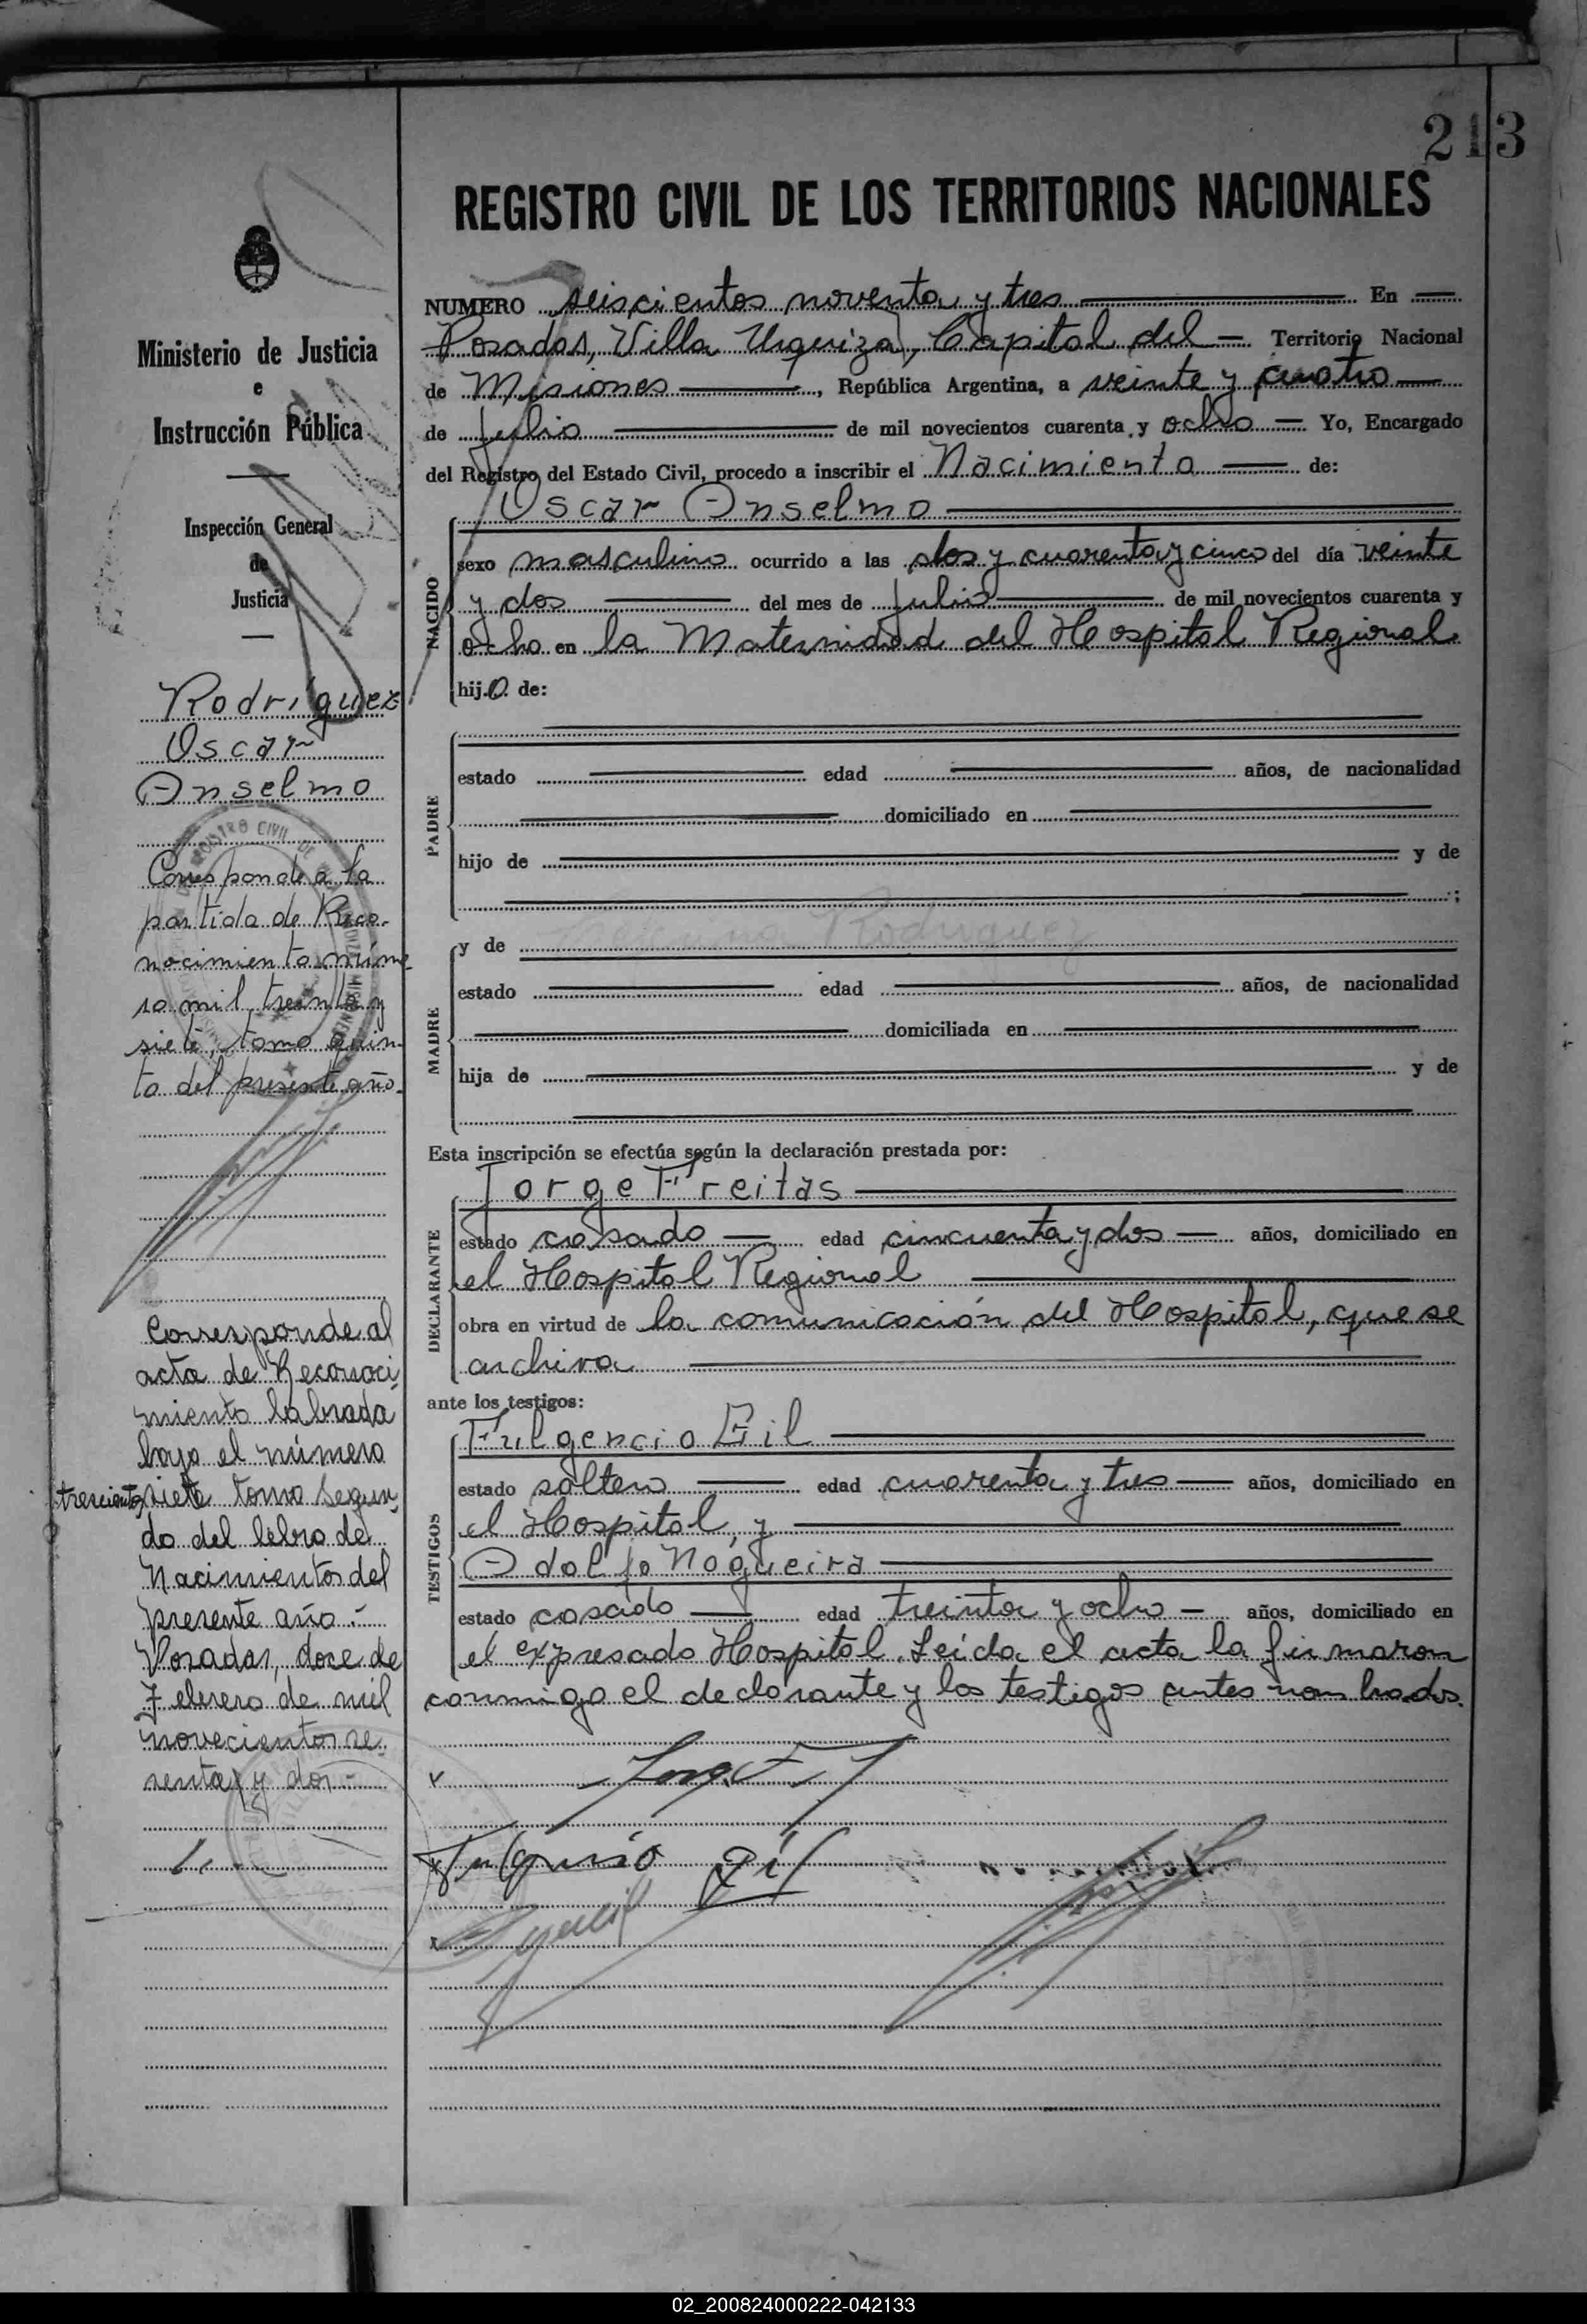 213
REGISTRO CIVIL DE LOS TERRITORIOS NACIONALES
Ministerio de Justicia
e
Instrucción Pública
Inspección General
de
Justicia
Rodríguez
Oscar
Anselmo
Corresponde a la
partida de Reco-
nocimiento núme-
ro mil treinta y
siete, tomo quin-
to del presente año.
Corresponde al
acta de Reconoci-
miento labrada
bajo el número
trescientos siete tomo segun-
do del libro de
Nacimientos del
presente año.-
Posadas, doce de
Febrero de mil
novecientos se-
senta y dos.-
NUMERO seiscientos noventa y tres En
Posadas, Villa Urquiza, Capital del Territorio Nacional
de Misiones, República Argentina, a veinte y cuatro
de Julio de mil novecientos cuarenta y ocho Yo, Encargado
del Registro del Estado Civil, procedo a inscribir el Nacimiento de:
Oscar Anselmo
NACIDO
sexo masculino ocurrido a las dos y cuarenta y cinco del día veinte
y dos del mes de julio de mil novecientos cuarenta y
ocho en la Maternidad del Hospital Regional
hijo de:
PADRE
estado edad años, de nacionalidad
domiciliado en
hijo de y de
;
MADRE
y de Rodriguez
estado edad años, de nacionalidad
domiciliada en
hija de y de
Esta inscripción se efectúa según la declaración prestada por:
DECLARANTE
Jorge Freitas
estado casado edad cincuenta y dos años, domiciliado en
el Hospital Regional
obra en virtud de la comunicación del Hospital, que se
archiva
ante los testigos:
TESTIGOS
Fulgencio Gil
estado soltero edad cuarenta y tres años, domiciliado en
el Hospital, y
Adolfo Nogueira
estado casado edad treinta y ocho años, domiciliado en
el expresado Hospital. Leída el acta la firmaron
conmigo el declarante y los testigos antes nombrados.
Fulgencio Gil
02_200824000222-042133